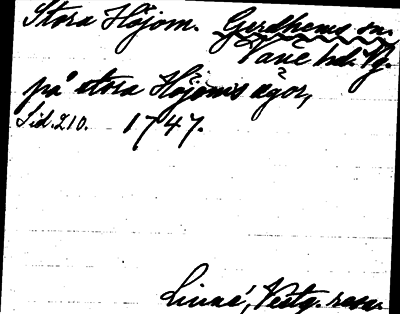 Stora Höjom. Gerdhems sn.
Väne hd. Vg.
på stora Höjoms ägor,
Sid. 210. 1747.
Linné, Vestg. resa.